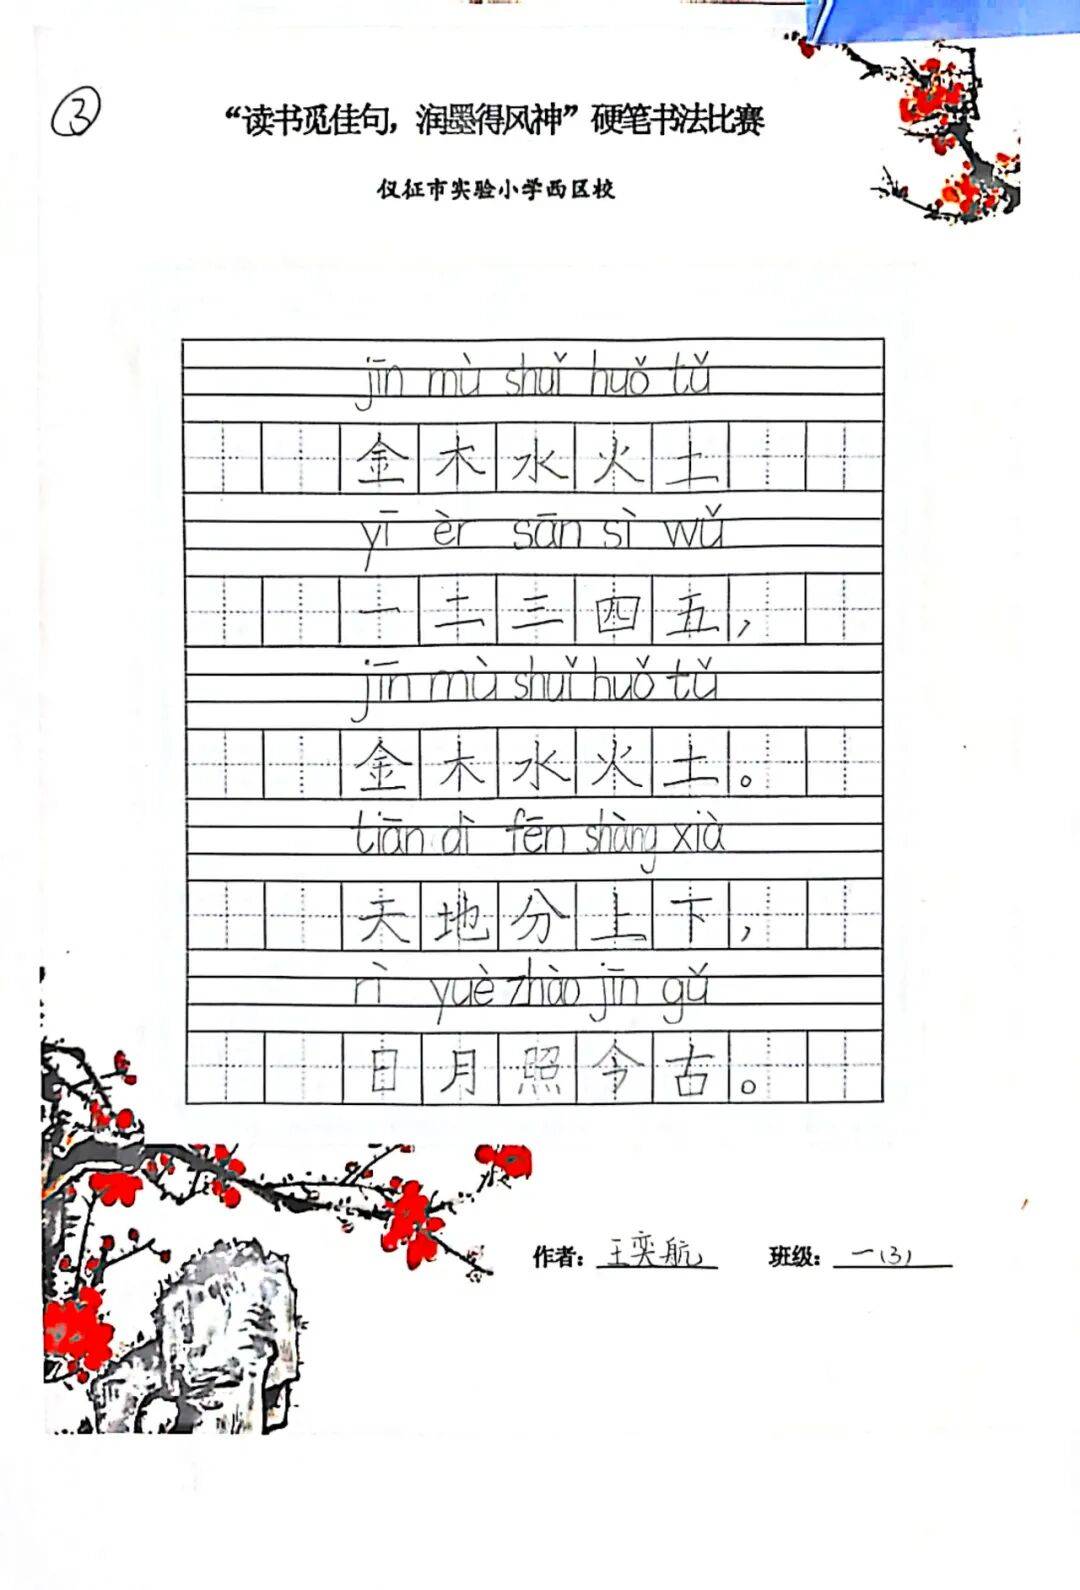 ③
“读书觅佳句，润墨得风神”硬笔书法比赛
仪征市实验小学西区校
jīn mù shuǐ huǒ tǔ
金木水火土
yī èr sān sì wǔ
一二三四五，
jīn mù shuǐ huǒ tǔ
金木水火土。
tiān dì fēn shàng xià
天地分上下，
rì yuè zhào jīn gǔ
日月照今古。
作者：王奕航 班级：一（3）